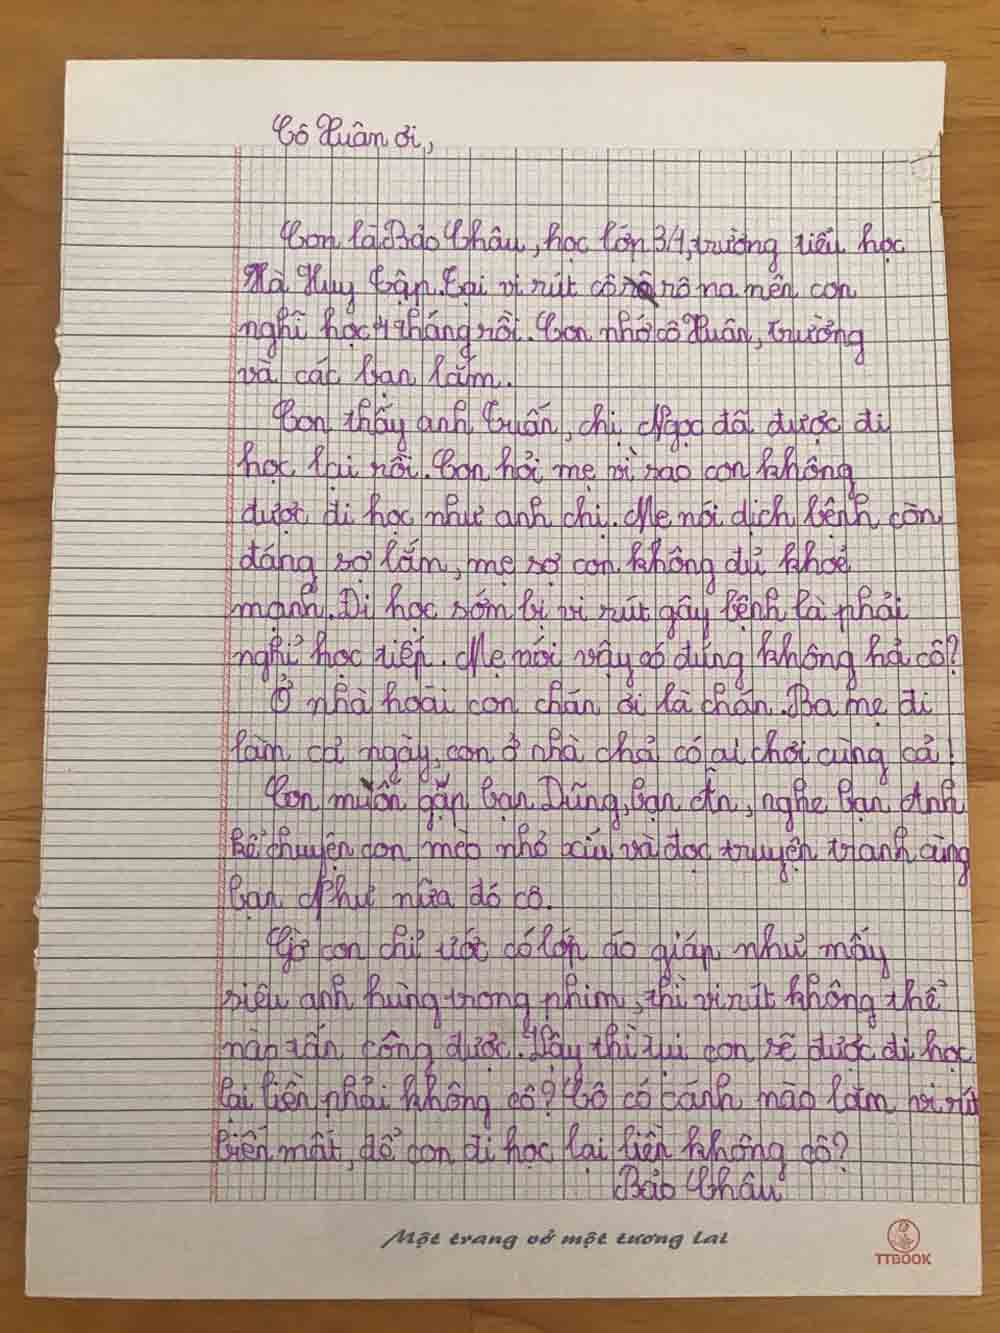 Cô Xuân ơi,
Con là Bảo Châu, học lớp 3/4, trường tiểu học
Hà Huy Tập. Tại vi rút cô rô na nên con
nghỉ học 4 tháng rồi. Con nhớ cô Xuân, trường
và các bạn lắm.
Con thấy anh Tuấn, chị Ngọc đã được đi
học lại rồi. Con hỏi mẹ vì sao con không
được đi học như anh chị. Mẹ nói dịch bệnh còn
đáng sợ lắm, mẹ sợ con không đủ khoẻ
mạnh. Đi học sớm bị vi rút gây bệnh là phải
nghỉ học tiếp. Mẹ nói vậy có đúng không hả cô?
Ở nhà hoài con chán ơi là chán. Ba mẹ đi
làm cả ngày, con ở nhà chả có ai chơi cùng cả!
Con muốn gặp bạn Dũng, bạn Ân, nghe bạn Anh
kể chuyện con mèo nhỏ xíu và đọc truyện tranh cùng
bạn Như nữa đó cô.
Giờ con chỉ ước có lớp áo giáp như mấy
siêu anh hùng trong phim, thì vi rút không thể
nào tấn công được. Vậy thì tụi con sẽ được đi học
lại liền phải không cô? Cô có cánh nào làm vi rút
biến mất, để con đi học lại liền không cô?
Bảo Châu
Một trang vở một tương lai
TTBOOK